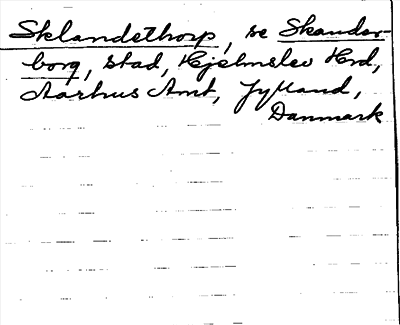 Sklandethorp, se Skander-
borg, stad, Hjelmslev Hrd,
Aarhus Amt, Jylland,
Danmark